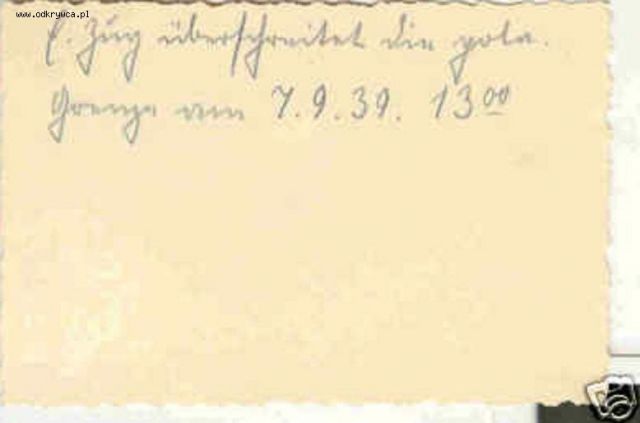 www.odkrywca.pl
Zug überschreitet die poln.
Grenze am 7.9.39. 13⁰⁰